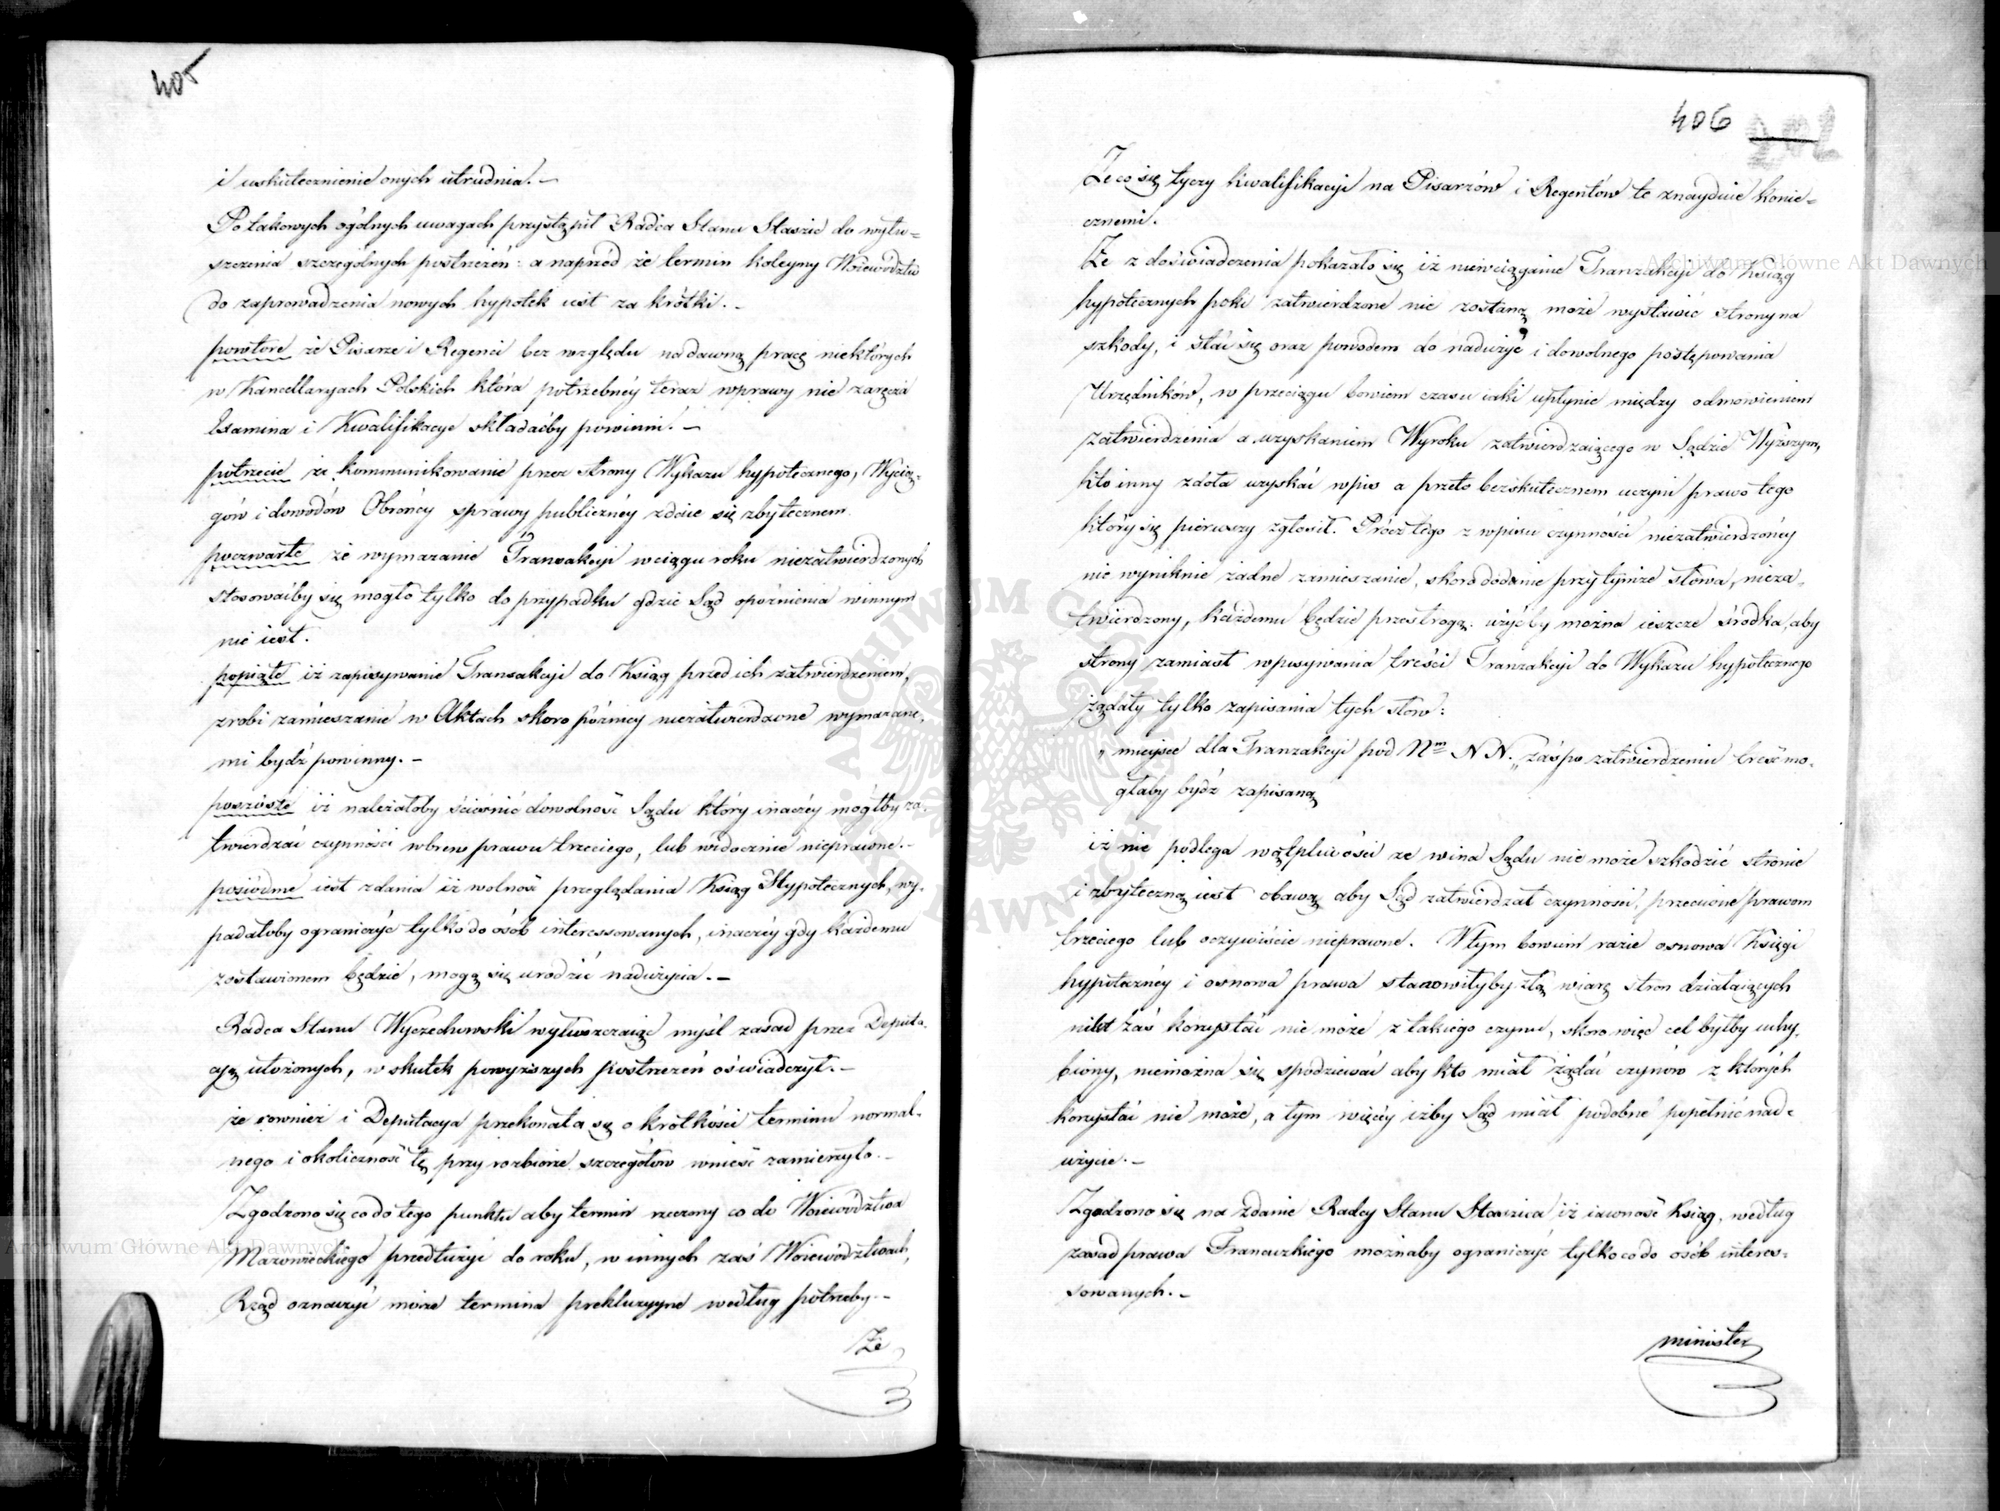 405
i uskutecznienie onych utrudnia. –
Po takowych ogólnych uwagach przystąpił Radca Stanu Staszic do wyłu=
szczenia szczególnych postrzeżeń: a naprzód że termin koleyny Woiewództw
do zaprowadzenia nowych hypotek iest za krótki. –
powtore że Pisarze i Regenci bez względu na dawną pracę niektórych
w Kancellaryach Polskich która potrzebnéy teraz wprawy nie zaręcza
Examina i Kwalifikacye składaćby powinni. –
potrzecie że kommunikowanie przez strony Wykazu hypotecznego, Wycią=
gów i dowodów Obrońcy sprawy publicznéy zdaie się zbytecznem.
poczwarte że wymazanie Tranzakcyi wciągu roku niezatwierdzonych
stosowaćby się mogło tylko do przypadku gdzie Sąd opóźnienia winnym
nie iest.
popiąte iż zapisywanie Tranzakcyi do Ksiąg przed ich zatwierdzeniem,
zrobi zamieszanie w Aktach skoro późniey niezatwierdzone wymazane.
mi bydź powinny. –
poszóste iż należałoby ścieśnić dowolność Sądu który inaczéy mógłby za=
twierdzać czynności wbrew prawu trzeciego, lub widocznie nieprawne. –
posiódme iest zdania iż wolność przeglądania Ksiąg Hypotecznych, wy=
padałoby ograniczyć tylko do osób interessowanych, inaczéy gdy każdemu
zostawionem będzie, mogą się urodzić nadużycia. –
Radca Stanu Wyczechowski wyłuszczaiąc myśl zasad przez Deputa=
cyą ułożonych, w skutek powyższych postrzeżeń oświadczył. –
że rownież i Deputacya przekonała się o krótkości terminu normal=
nego i okoliczność tę przy rozbiorze szczegółów wnieść zamierzyła. –
Zgodzono się co do tego punktu aby termin rzeczony co do Woiewództwa
Mazowieckiego przedłużyć do roku, w innych zaś Woiewództwach,
Rząd oznaczyć może termina prekluzyyne według potrzeby. –
Że
406
Że co się tyczy kwalifikacyi na Pisarzów i Regentów te znayduie konie=
cznemi.
Że z doświadczenia pokazało się iż niewciąganie Tranzakcyi do ksiąg
hypotecznych poki zatwierdzone nie zostaną może wystawić strony na
szkody, i stać się oraz powodem do nadużyć i dowolnego postępowania
Urzędników, w przeciągu bowiem czasu iaki upłynie między odmowieniem
zatwierdzenia a uzyskaniem Wyroku zatwierdzaiącego w Sądzie Wyższym,
kto inny zdoła uzyskać wpis a przeto bezskutecznem uczyni prawo tego
który się pierwszy zgłosił. Prócz tego z wpisu czynności niezatwierdzonéy
nie wyniknie żadne zamieszanie, skoro dodanie przy tymże słowa, nieza=
twierdzony, każdemu będzie przestrogą: użyćby można ieszcze środka, aby
strony zamiast wpisywania treści Tranzakcyi do Wykazu hypotecznego
żądały tylko zapisania tych słow:
„ miejsce dla Tranzakcyi pod Nm NN. „ zaś po zatwierdzeniu treść mo=
głaby bydź zapisaną
iż nie podlega wątpliwości że wina Sądu nie może szkodzić stronie
i zbyteczną iest obawą aby Sąd zatwierdzał czynności, przeciwne prawom
trzeciego lub oczywiście nieprawne. W tym bowiem razie osnowa Księgi
hypotecznéy i osnowa prawa stanowiłyby złą wiarę stron działaiących
nikt zaś korzystać nie może z takiego czynu, skoro więc cel byłby uchy=
biony, niemożna się spodziewać aby kto miał żądać czynów z których
korzystać nie może, a tym więcéy iżby Sąd miał podobne popełnić nad=
użycie. –
Zgodzono się na zdanie Radcy Stanu Staszica iż iawność ksiąg, według
zasad prawa Francuzkiego możnaby ograniczyć tylko co do osób interes=
sowanych. –
minister
Archiwum Główne Akt Dawnych
Archiwum Główne Akt Dawnych
ARCHIWUM GŁÓWNE AKT DAWNYCH